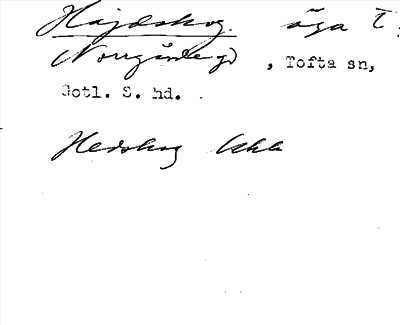 Hajdskog, äga t.
Norrgårde gd, Tofta sn,
Gotl. S. hd.
Hedskog